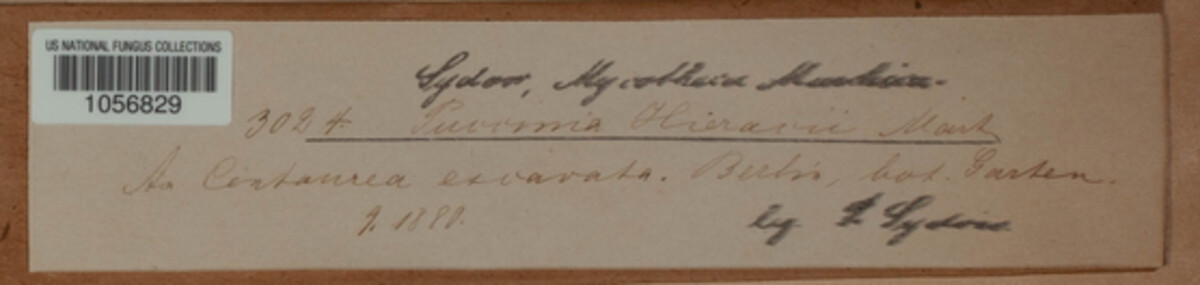 US NATIONAL FUNGUS COLLECTIONS
1056829
Sydow, Mycotheca Marchica.
3024. Puccinia Hieracii Mart
An Centaurea excavata. Berlin, bot. Garten.
9. 1890.
leg. P. Sydow